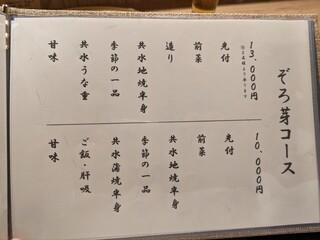 ぞろ芽コース
13,000円
先付
前菜
造り
共水地焼半身
季節の一品
共水うな重
甘味
10,000円
先付
前菜
共水地焼半身
季節の一品
共水蒲焼半身
ご飯・肝吸
甘味